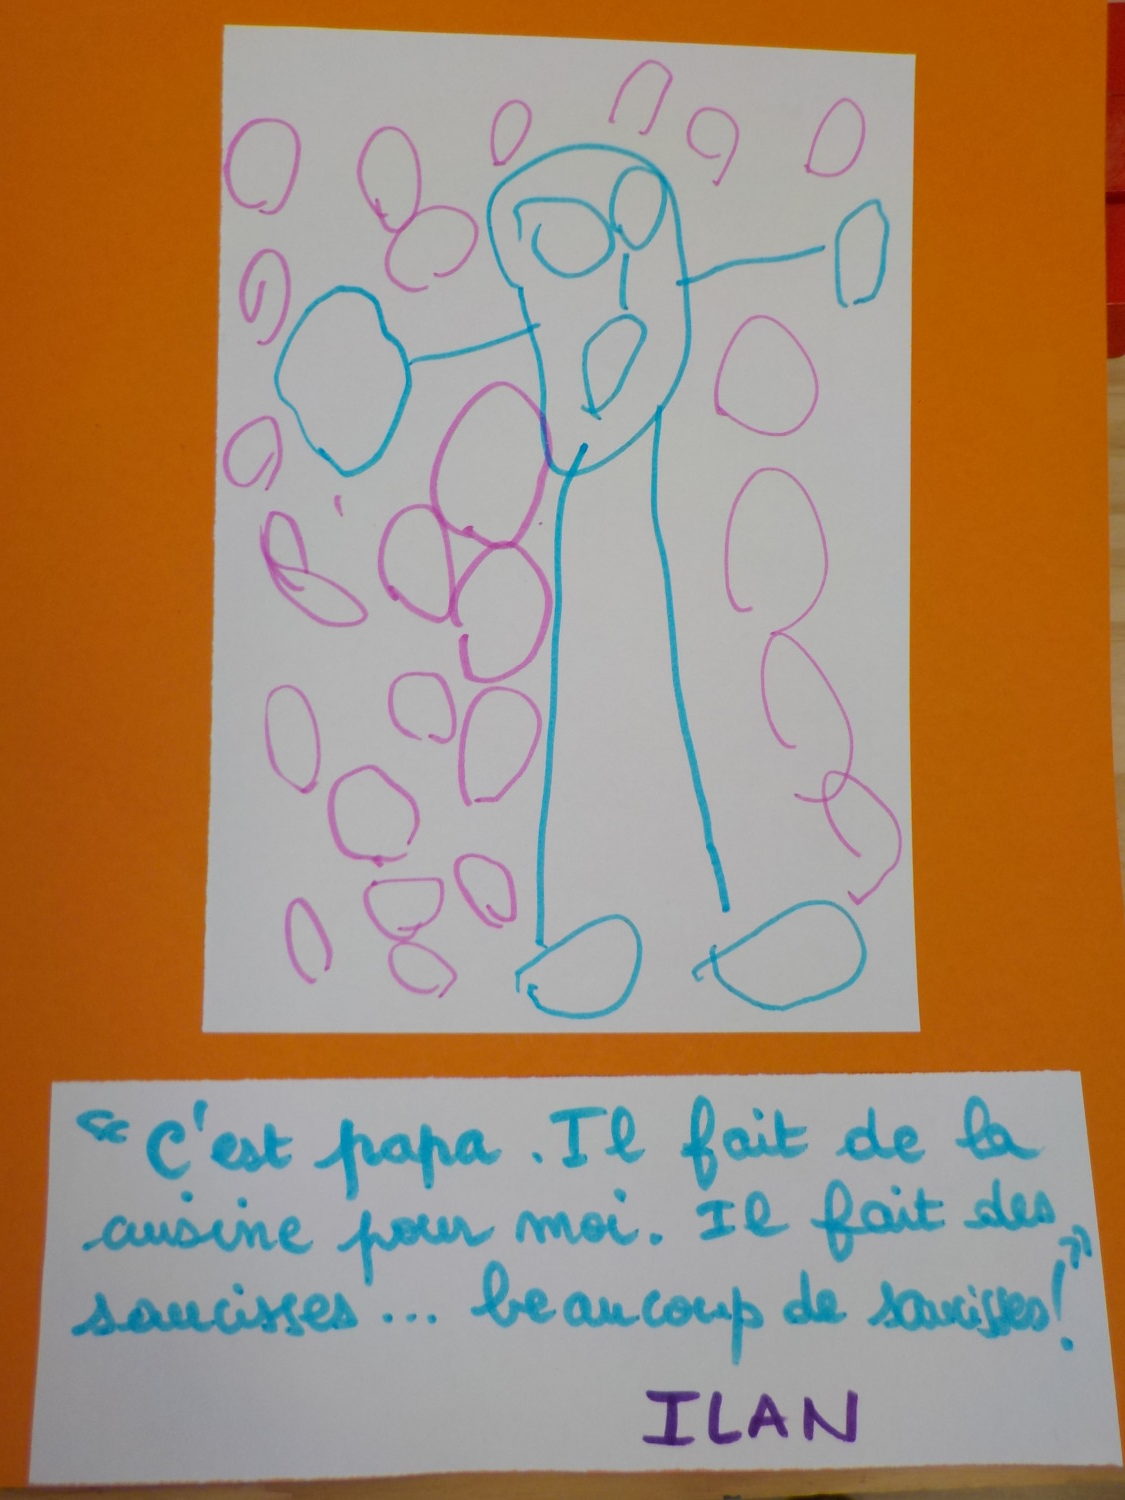 "C'est papa. Il fait de la
cuisine pour moi. Il fait des
saucisses... beaucoup de saucisses!"
ILAN